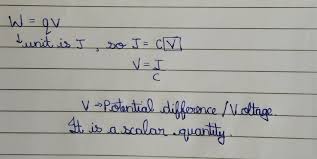 W = qV
↓unit is J, so J = C[V]
V = J/C
V → Potential difference / Voltage.
It is a scalar quantity.